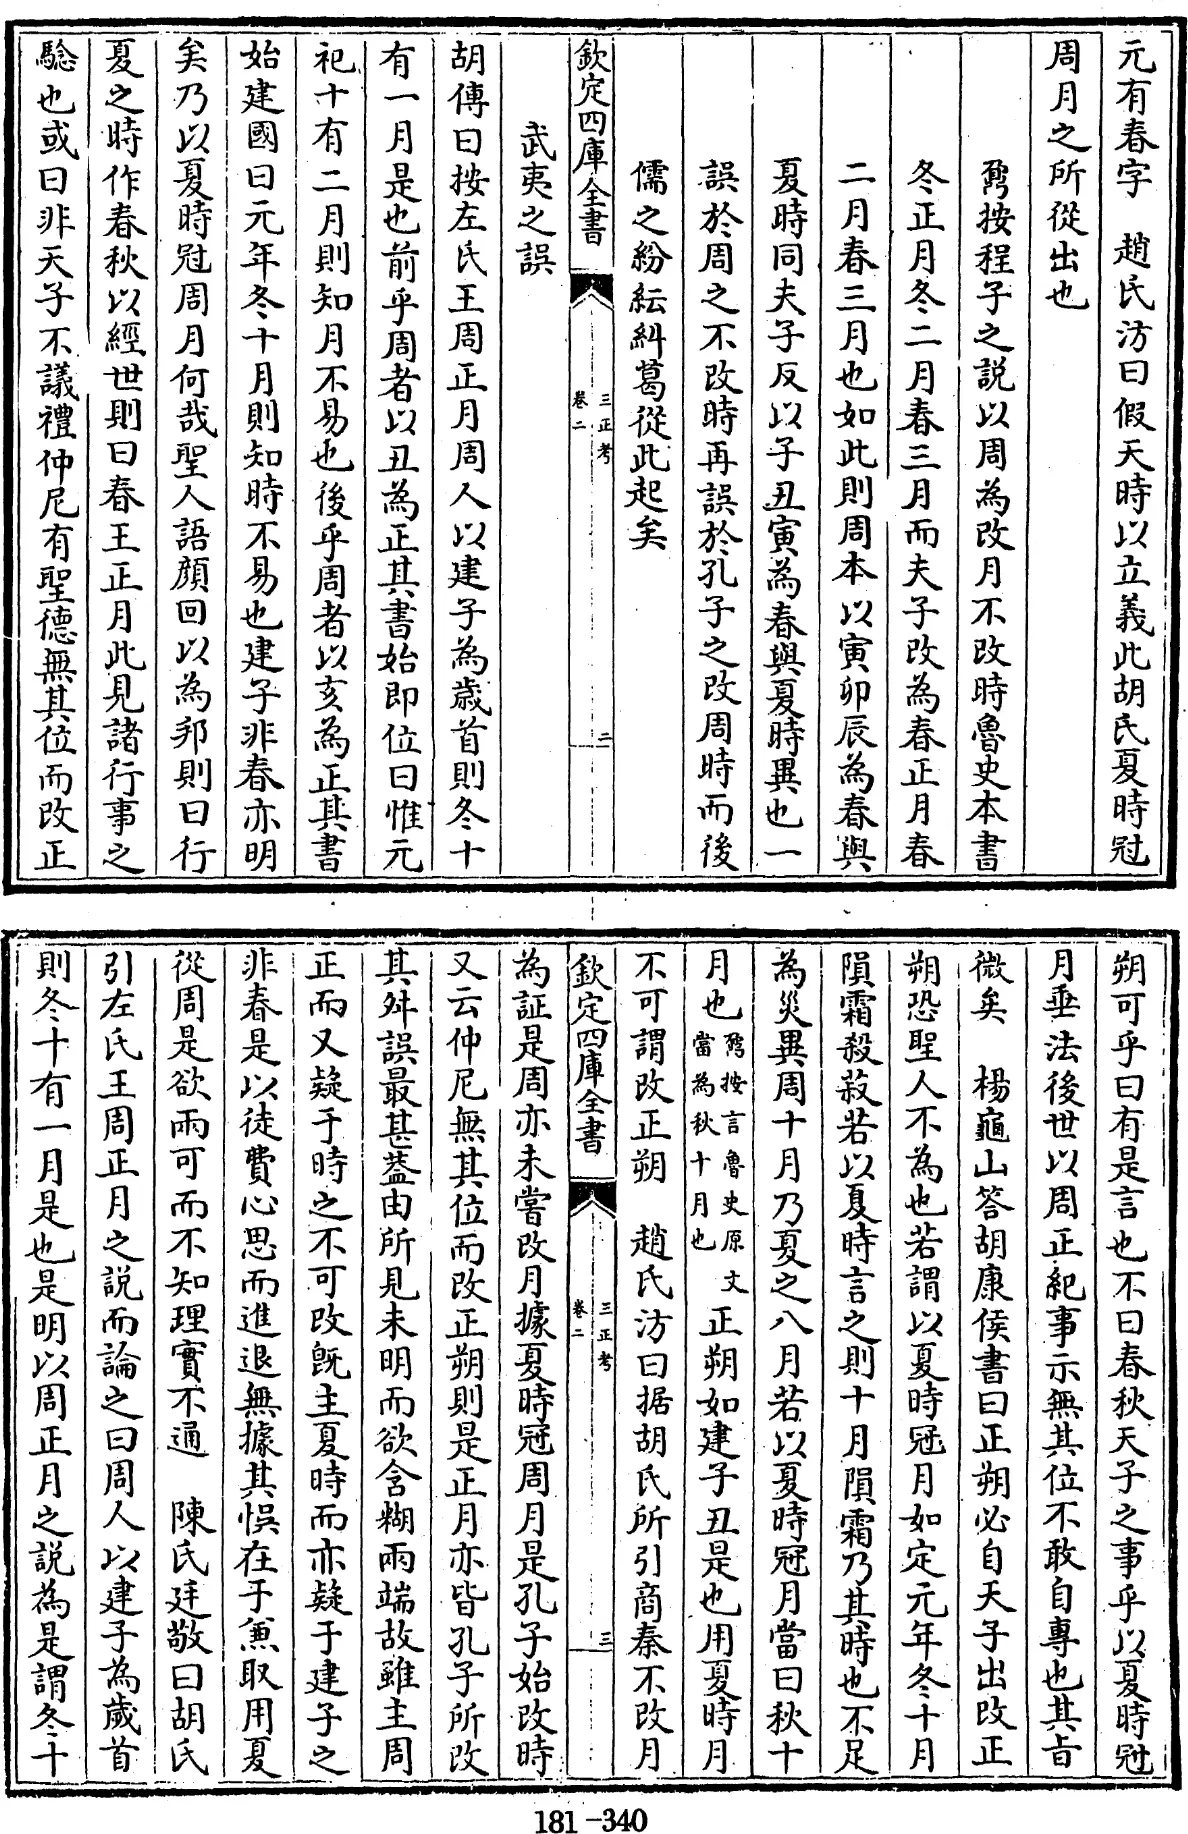 元有春字　趙氏汸曰假天時以立義此胡氏夏時冠
周月之所從出也
鶚按程子之說以周為改月不改時魯史本書
冬正月冬二月春三月而夫子改為春正月春
二月春三月也如此則周本以寅卯辰為春與
夏時同夫子反以子丑寅為春與夏時異也一
誤於周之不改時再誤於孔子之改周時而後
儒之紛紜糾葛從此起矣
欽定四庫全書
三正考
卷二
二
武夷之誤
胡傳曰按左氏王周正月周人以建子為歲首則冬十
有一月是也前乎周者以丑為正其書始即位曰惟元
祀十有二月則知月不易也後乎周者以亥為正其書
始建國曰元年冬十月則知時不易也建子非春亦明
矣乃以夏時冠周月何哉聖人語顏回以為邦則曰行
夏之時作春秋以經世則曰春王正月此見諸行事之
驗也或曰非天子不議禮仲尼有聖德無其位而改正
朔可乎曰有是言也不曰春秋天子之事乎以夏時冠
月垂法後世以周正紀事示無其位不敢自專也其旨
微矣　楊龜山答胡康侯書曰正朔必自天子出改正
朔恐聖人不為也若謂以夏時冠月如定元年冬十月
隕霜殺菽若以夏時言之則十月隕霜乃其時也不足
為災異周十月乃夏之八月若以夏時冠月當曰秋十
月也鶚按言魯史原文當為秋十月也正朔如建子丑是也用夏時月
不可謂改正朔　趙氏汸曰据胡氏所引商秦不改月
欽定四庫全書
三正考
卷二
三
為証是周亦未嘗改月據夏時冠周月是孔子始改時
又云仲尼無其位而改正朔則是正月亦皆孔子所改
其舛誤最甚葢由所見未明而欲含糊兩端故雖主周
正而又疑于時之不可改既主夏時而亦疑于建子之
非春是以徒費心思而進退無據其悞在于兼取用夏
從周是欲兩可而不知理實不通　陳氏廷敬曰胡氏
引左氏王周正月之說而論之曰周人以建子為歲首
則冬十有一月是也是明以周正月之說為是謂冬十
181-340